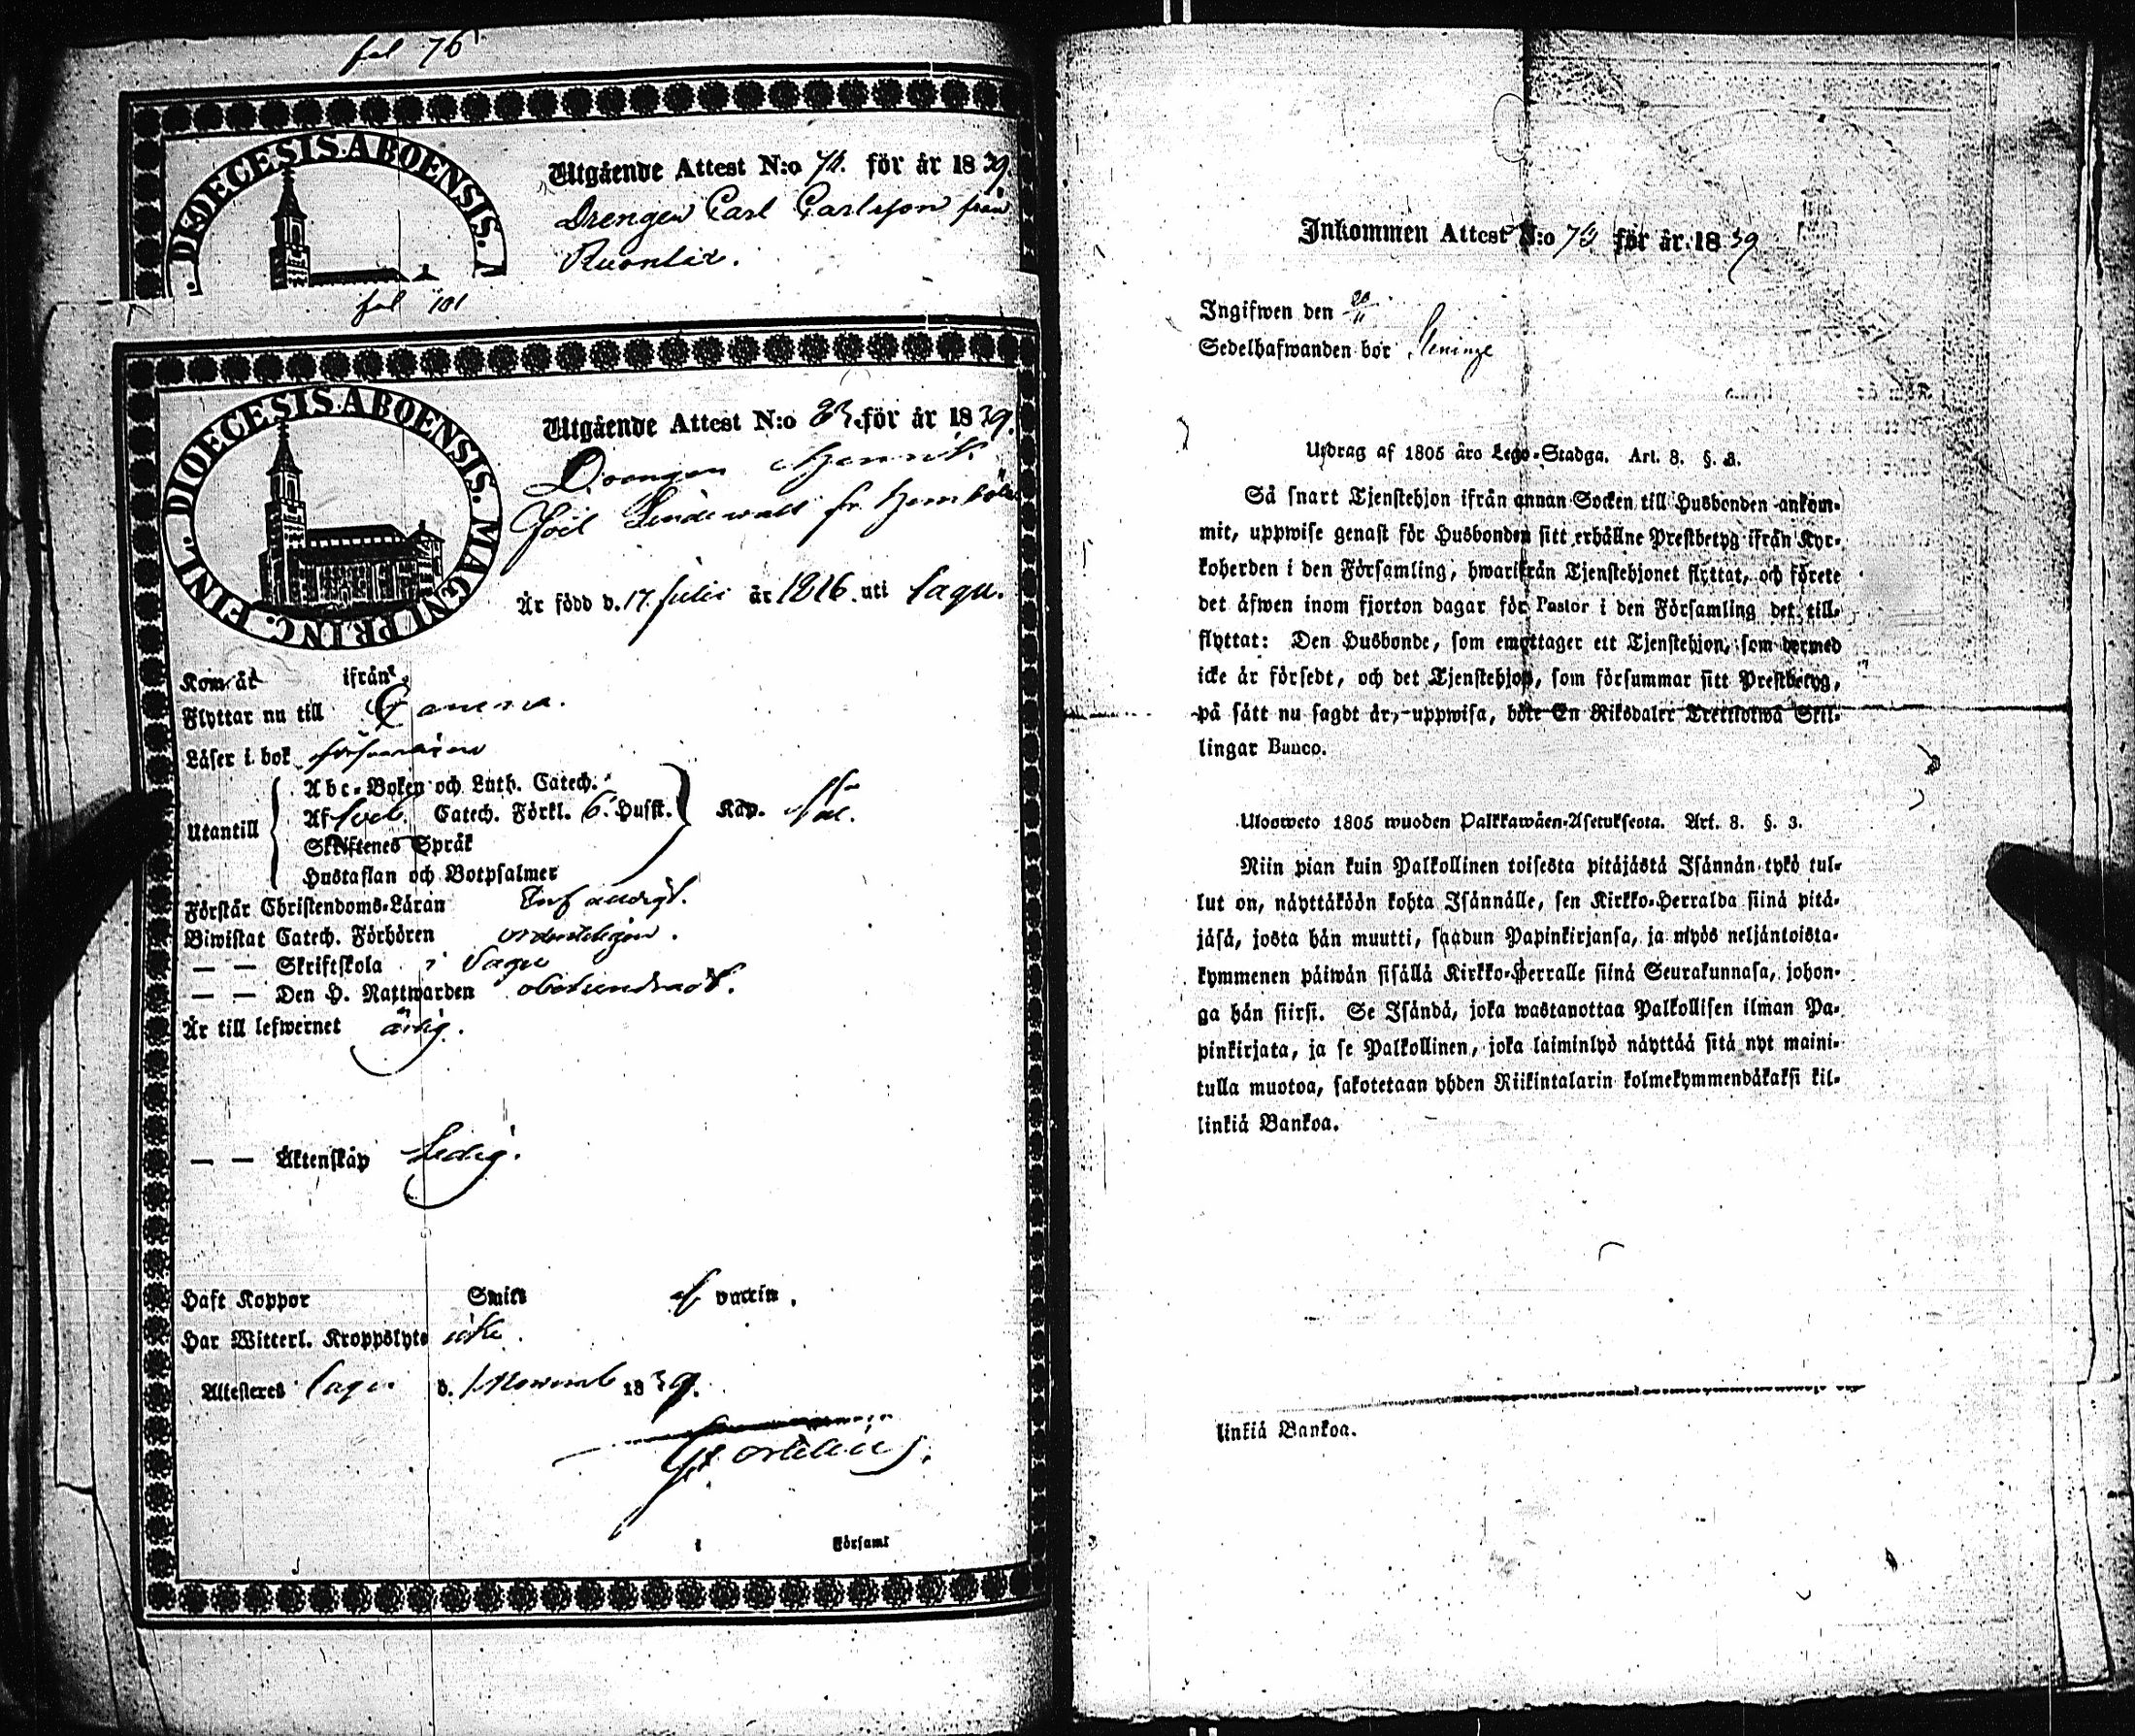 fol 76
DIOECESIS ABOENSIS.
Utgående Attest N:o 72. för år 1839.
Drengen Carl Carlsson från
fol 101
FINL. DIOECESIS ABOENSIS. MAGNI PRINC.
Utgående Attest N:o 23. för år 1839.
Drengen Henrik
Joel Lindewall fr.
Är född d. 17. Julii år 1816. uti Sagu.
Kom år ifrån
Flyttar nu till
Läser i bok försvarligen
Utantill
Abc-Boken och Luth. Catech.
Af Sveb. Catech. Förkl. 6. Huffl. Kap.
Skriftenes Språk
Hustaflan och Botpsalmer
Förstår Christendoms-Läran
Biwistat Catech. Förhören ordenteligen.
— — Skriftskola i Sagu
— — Den H. Nattwarden obehindradt.
Är till lefwernet ärlig.
— — Äktenskap Ledig.
Haft Koppor Smitt af vaccin.
Har Witterl. Kroppslyte icke.
Attesteres Sagu d. 1 Novemb 1839.
i Församl
Inkommen Attest N:o 73 för år 1839
Ingifwen den 20/11
Sedelhafwanden bor
Utdrag af 1805 års Lego-Stadga. Art. 8. §. 3.
Så snart Tjenstehjon ifrån annan Socken till Husbonden ankom-
mit, uppwise genast för Husbonden sitt erhållne Prestbetyg ifrån Kyr-
koherden i den Församling, hwarifrån Tjenstehjonet flyttat, och förete
det äfwen inom fjorton dagar för Pastor i den Församling det till-
flyttat: Den Husbonde, som emottager ett Tjenstehjon, som dermed
icke är försedt, och det Tjenstehjon, som försummar sitt Prestbetyg,
på sätt nu sagdt är, uppwisa, böte En Riksdaler Trettiotwå Skil-
lingar Banco.
Ulosweto 1805 wuoden Palkkawäen-Asetuksesta. Art. 8. §. 3.
Niin pian kuin Palkollinen toisesta pitäjästä Isännän tykö tul-
lut on, näyttäköön kohta Isännälle, sen Kirkko-Herralda siinä pitä-
jäsä, josta hän muutti, saadun Papinkirjansa, ja myös neljäntoista-
kymmenen päiwän sisällä Kirkko-Herralle siinä Seurakunnasa, johon-
ga hän siirsi. Se Isändä, joka wastanottaa Palkollisen ilman Pa-
pinkirjata, ja se Palkollinen, joka laiminlyö näyttää sitä nyt maini-
tulla muotoa, sakotetaan yhden Riikintalarin kolmekymmendäkaksi kil-
linkiä Bankoa.
linkiä Bankoa.